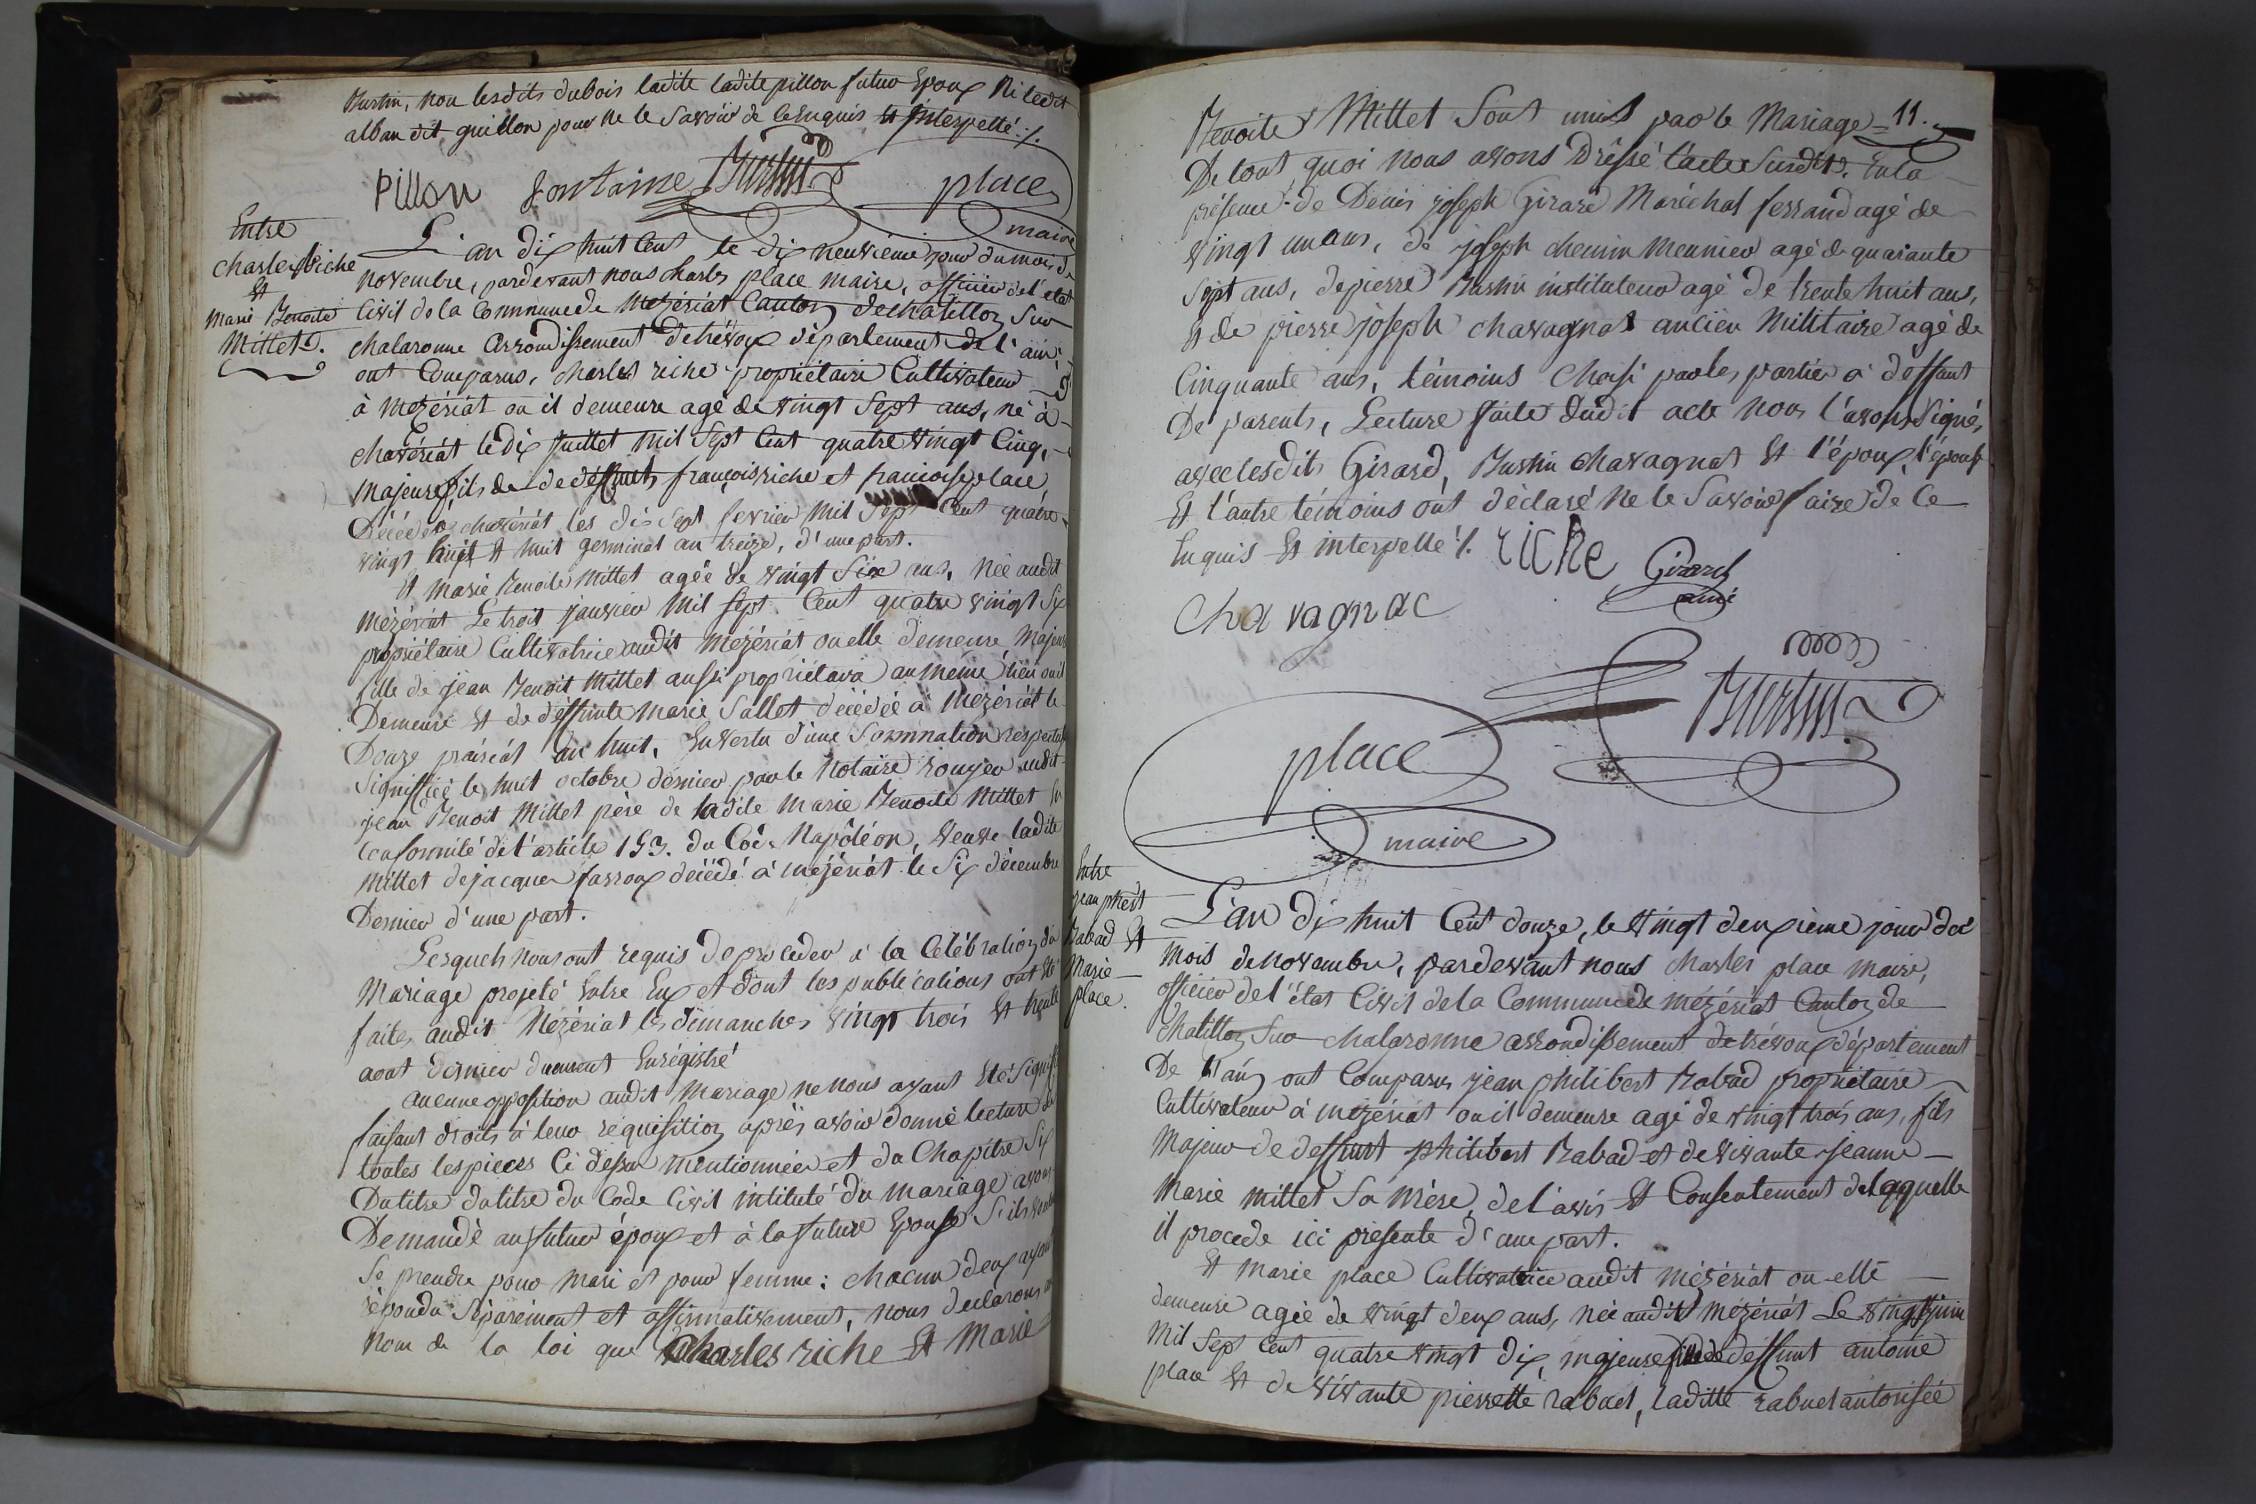 Burtin, non lesdits dubois ladite ladite pillon futur Epoux Ni ledit
alban dit guillon pour ne le Savoir de ce Enquis et Interpellé ./.
Pillon fontaine Burtin place
maire
Entre
Charles Riche
Et
Marie Benoite
Mittet.
L'an dix huit Cent le dix neuvieme jour du mois de
novembre, pardevant nous Charles place maire, officier de l'etat
Civil de la Commune de Mézériat Canton de chatillon Sur
chalaronne arrondissement de trévoux département de l'ain;
ont Comparus, charles riche propriétaire Cultivateur
à Mézériat ou il demeure agé de vingt Sept ans, né à
chavériat le dix juillet mil Sept Cent quatre vingt Cinq,
majeur fils de de deffunts françois riche et francoise place
Décédés à chavériat les dix Sept fevrier mil Sept Cent quatre
vingt huit et huit germinal an treize, d'une part.
Et Marie Benoite Mittet agée de vingt Six ans, Née audit
Mézériat Le trois janvier Mil Sept Cent quatre vingt Six
propriétaire Cultivatrice audit Mézériat ou elle demeure Majeure
fille de jean Benoit Mittet aussi propriétaire au même lieu ou il
Demeure Et de deffunte Marie Sallet décédée à Mézériat le
Douze prairéal an huit, En vertu d'une Sommation respectueuse
Signiffiée le huit octobre dernier par le Notaire rouyer audit
jean Benoit Mittet père de ladite Marie Benoite Mittet En
Conformité de l'article 153. du Code Napoléon, Veuve ladite
Mittet de jacques farroux décédé à mézériat le Six décembre
Dernier d'une part.
Lesquels nous ont requis de proceder à la Célébration du
Mariage projeté Entre Eux et dont les publications ont Eté
faites audit Mézériat les dimanches vingt trois Et trente
aout dernier duement Enrégistré
aucune opposition audit Mariage ne nous ayant Eté Signiffiée
faisant droits à leur réquisition après avoir donné lecture de
toutes les pieces Ci dessus mentionnées et du Chapitre Six
Du titre du titre du Code Civil intitulé du mariage avons
Demandé au futur époux et à la future Epouse S'ils veulent
Se prendre pour Mari et pour femme: chacun d'eux ayant
répondu Séparement et affirmativement, nous declarons au
Nom de la loi que Charles riche Et Marie
11.
Benoite Mittet Sont unis par le Mariage
De tout quoi nous avons Dréssé l'acte Susdit. En la
présence de Denis joseph Girard Maréchal ferrand agé de
vingt un ans, de joseph chemin Meunier agé de quarante
Sept ans, de pierre Burtin instituteur agé de trente huit ans,
Et de pierre joseph chavagnat ancien Militaire agé de
Cinquante ans, témoins choisi par les parties à deffaut
De parents, Lecture faite dudit acte nous l'avons Signés,
avec lesdits Girard, Burtin chavagnat Et l'époux, l'épouse
Et l'autre témoins ont déclaré ne le Savoir faire de Ce
Enquis Et interpellé ./. riche Girard
ainé
Chavagnac
Burtin
place
maire
Entre
jean phert
Rabad Et
Marie
place.
L'an dix huit Cent douze, le vingt deuxième jour du
mois de novembre, pardevant nous charles place maire,
officier de l'état Civil de la Commune de mézériat Canton de
chatillon Sur chalaronne arrondissement de trévoux département
De l'ain ont Comparus jean philibert Rabad propriétaire
Cultivateur à mézériat ou il demeure agé de vingt trois ans, fils
Majeur de deffunt philibert Rabad et de vivante jeanne
Marie mittet Sa Mère, de l'avis Et Consentement de laquelle
il procede ici présente d'une part.
Et marie place Cultivatrice audit mézériat ou elle
demeure agée de vingt deux ans, née audit Mézériat Le vingt juin
Mil Sept Cent quatre vingt dix, majeure fille de deffunt antoine
place Et de vivante pierrette rabuel, laditte rabuel autorisée